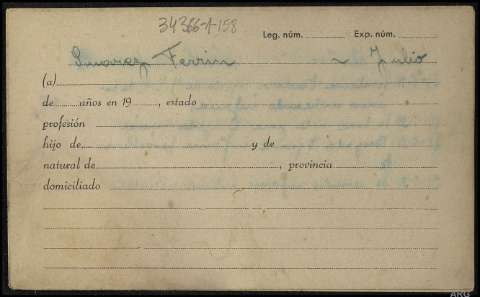 34366-A-158
Leg. núm. Exp. núm.
Suarez Ferrin ~ Julio
(a)
de años en 19 , estado
profesión
hijo de y de
natural de , provincia
domiciliado
ARG